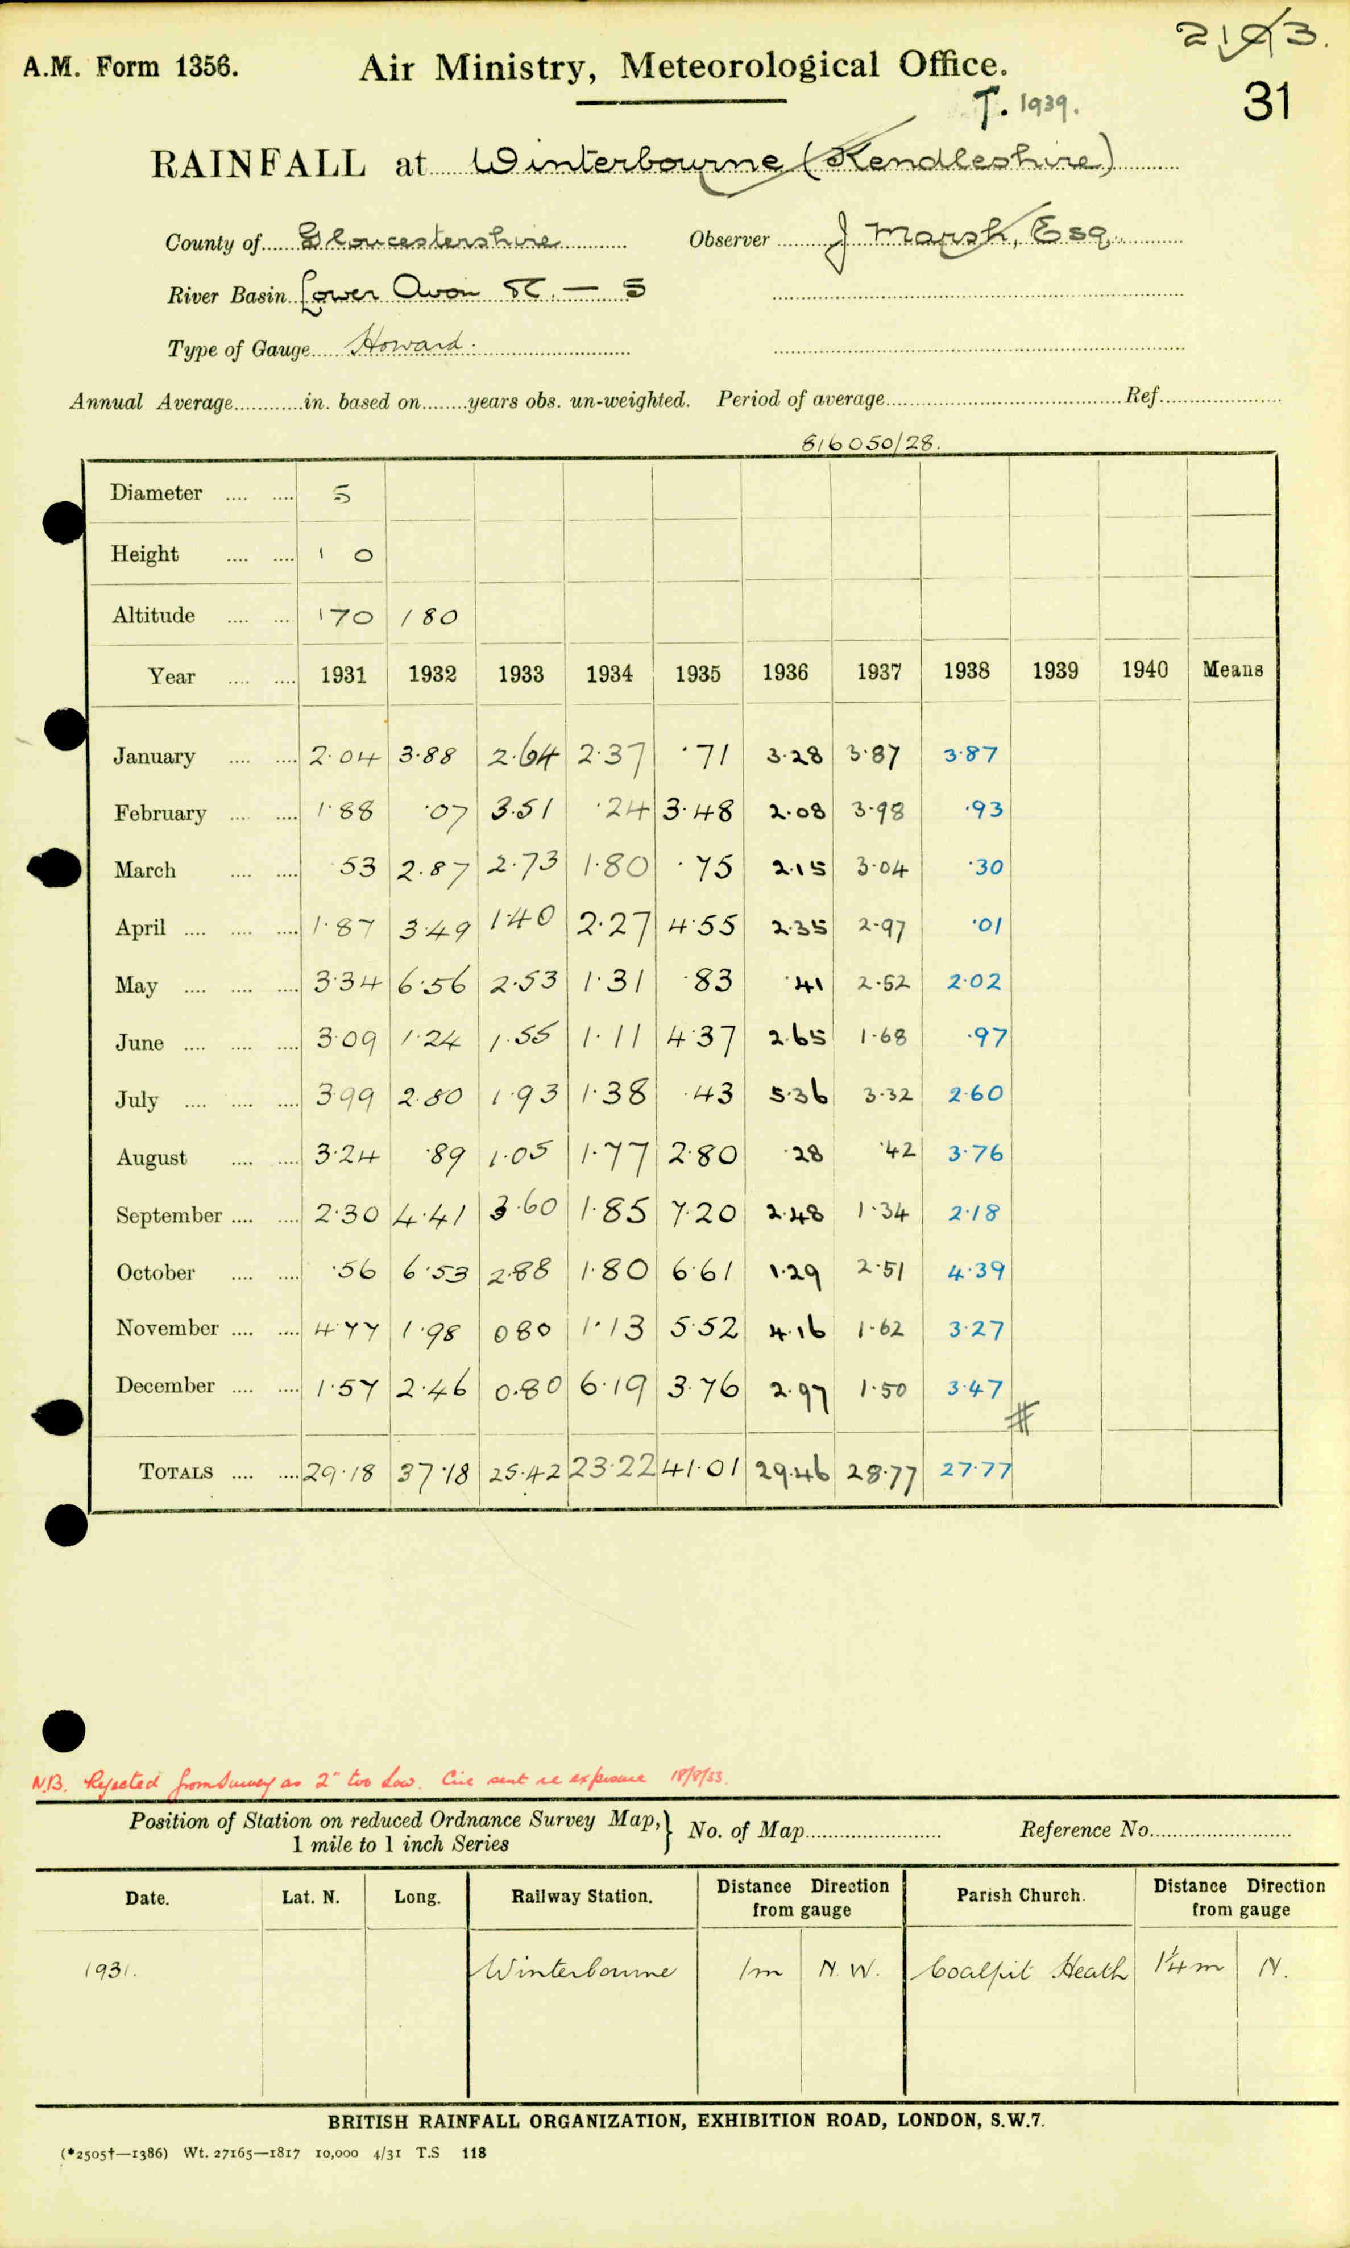 2193.
A.M. Form 1356.
Air Ministry, Meteorological Office.
T. 1939.
31
RAINFALL at Winterbourne (Kendleshire)
County of Gloucestershire Observer J Marsh, Esq.
River Basin Lower Avon — 5
Type of Gauge Howard.
Annual Average in. based on years obs. un-weighted. Period of average Ref.
816050/28.
Diameter 5
Height 1 0
Altitude 170 180
Year 1931 1932 1933 1934 1935 1936 1937 1938 1939 1940 Means
January 2.04 3.88 2.64 2.37 .71 3.28 3.87 3.87
February 1.88 .07 3.51 .24 3.48 2.08 3.98 .93
March .53 2.87 2.73 1.80 .75 2.15 3.04 .30
April 1.87 3.49 1.40 2.27 4.55 2.35 2.97 .01
May 3.34 6.56 2.53 1.31 .83 .41 2.52 2.02
June 3.09 1.24 1.55 1.11 4.37 2.65 1.68 .97
July 3.99 2.80 1.93 1.38 .43 5.36 3.32 2.60
August 3.24 .89 1.05 1.77 2.80 .28 .42 3.76
September 2.30 4.41 3.60 1.85 7.20 2.48 1.34 2.18
October .56 6.53 2.88 1.80 6.61 1.29 2.51 4.39
November 4.77 1.98 0.80 1.13 5.52 4.16 1.62 3.27
December 1.57 2.46 0.80 6.19 3.76 2.97 1.50 3.47
#
TOTALS 29.18 37.18 25.42 23.22 41.01 29.46 28.77 27.77
N.B. Rejected from Survey as 2" too low. Circ sent re exposure 18/8/33.
Position of Station on reduced Ordnance Survey Map, } No. of Map Reference No.
1 mile to 1 inch Series
Date. Lat. N. Long. Railway Station. Distance Direction from gauge Parish Church. Distance Direction from gauge
1931. Winterbourne 1m N.W. Coalpit Heath 1¼m N.
BRITISH RAINFALL ORGANIZATION, EXHIBITION ROAD, LONDON, S.W.7.
(*2505†—1386) Wt. 27165—1817 10,000 4/31 T.S 118